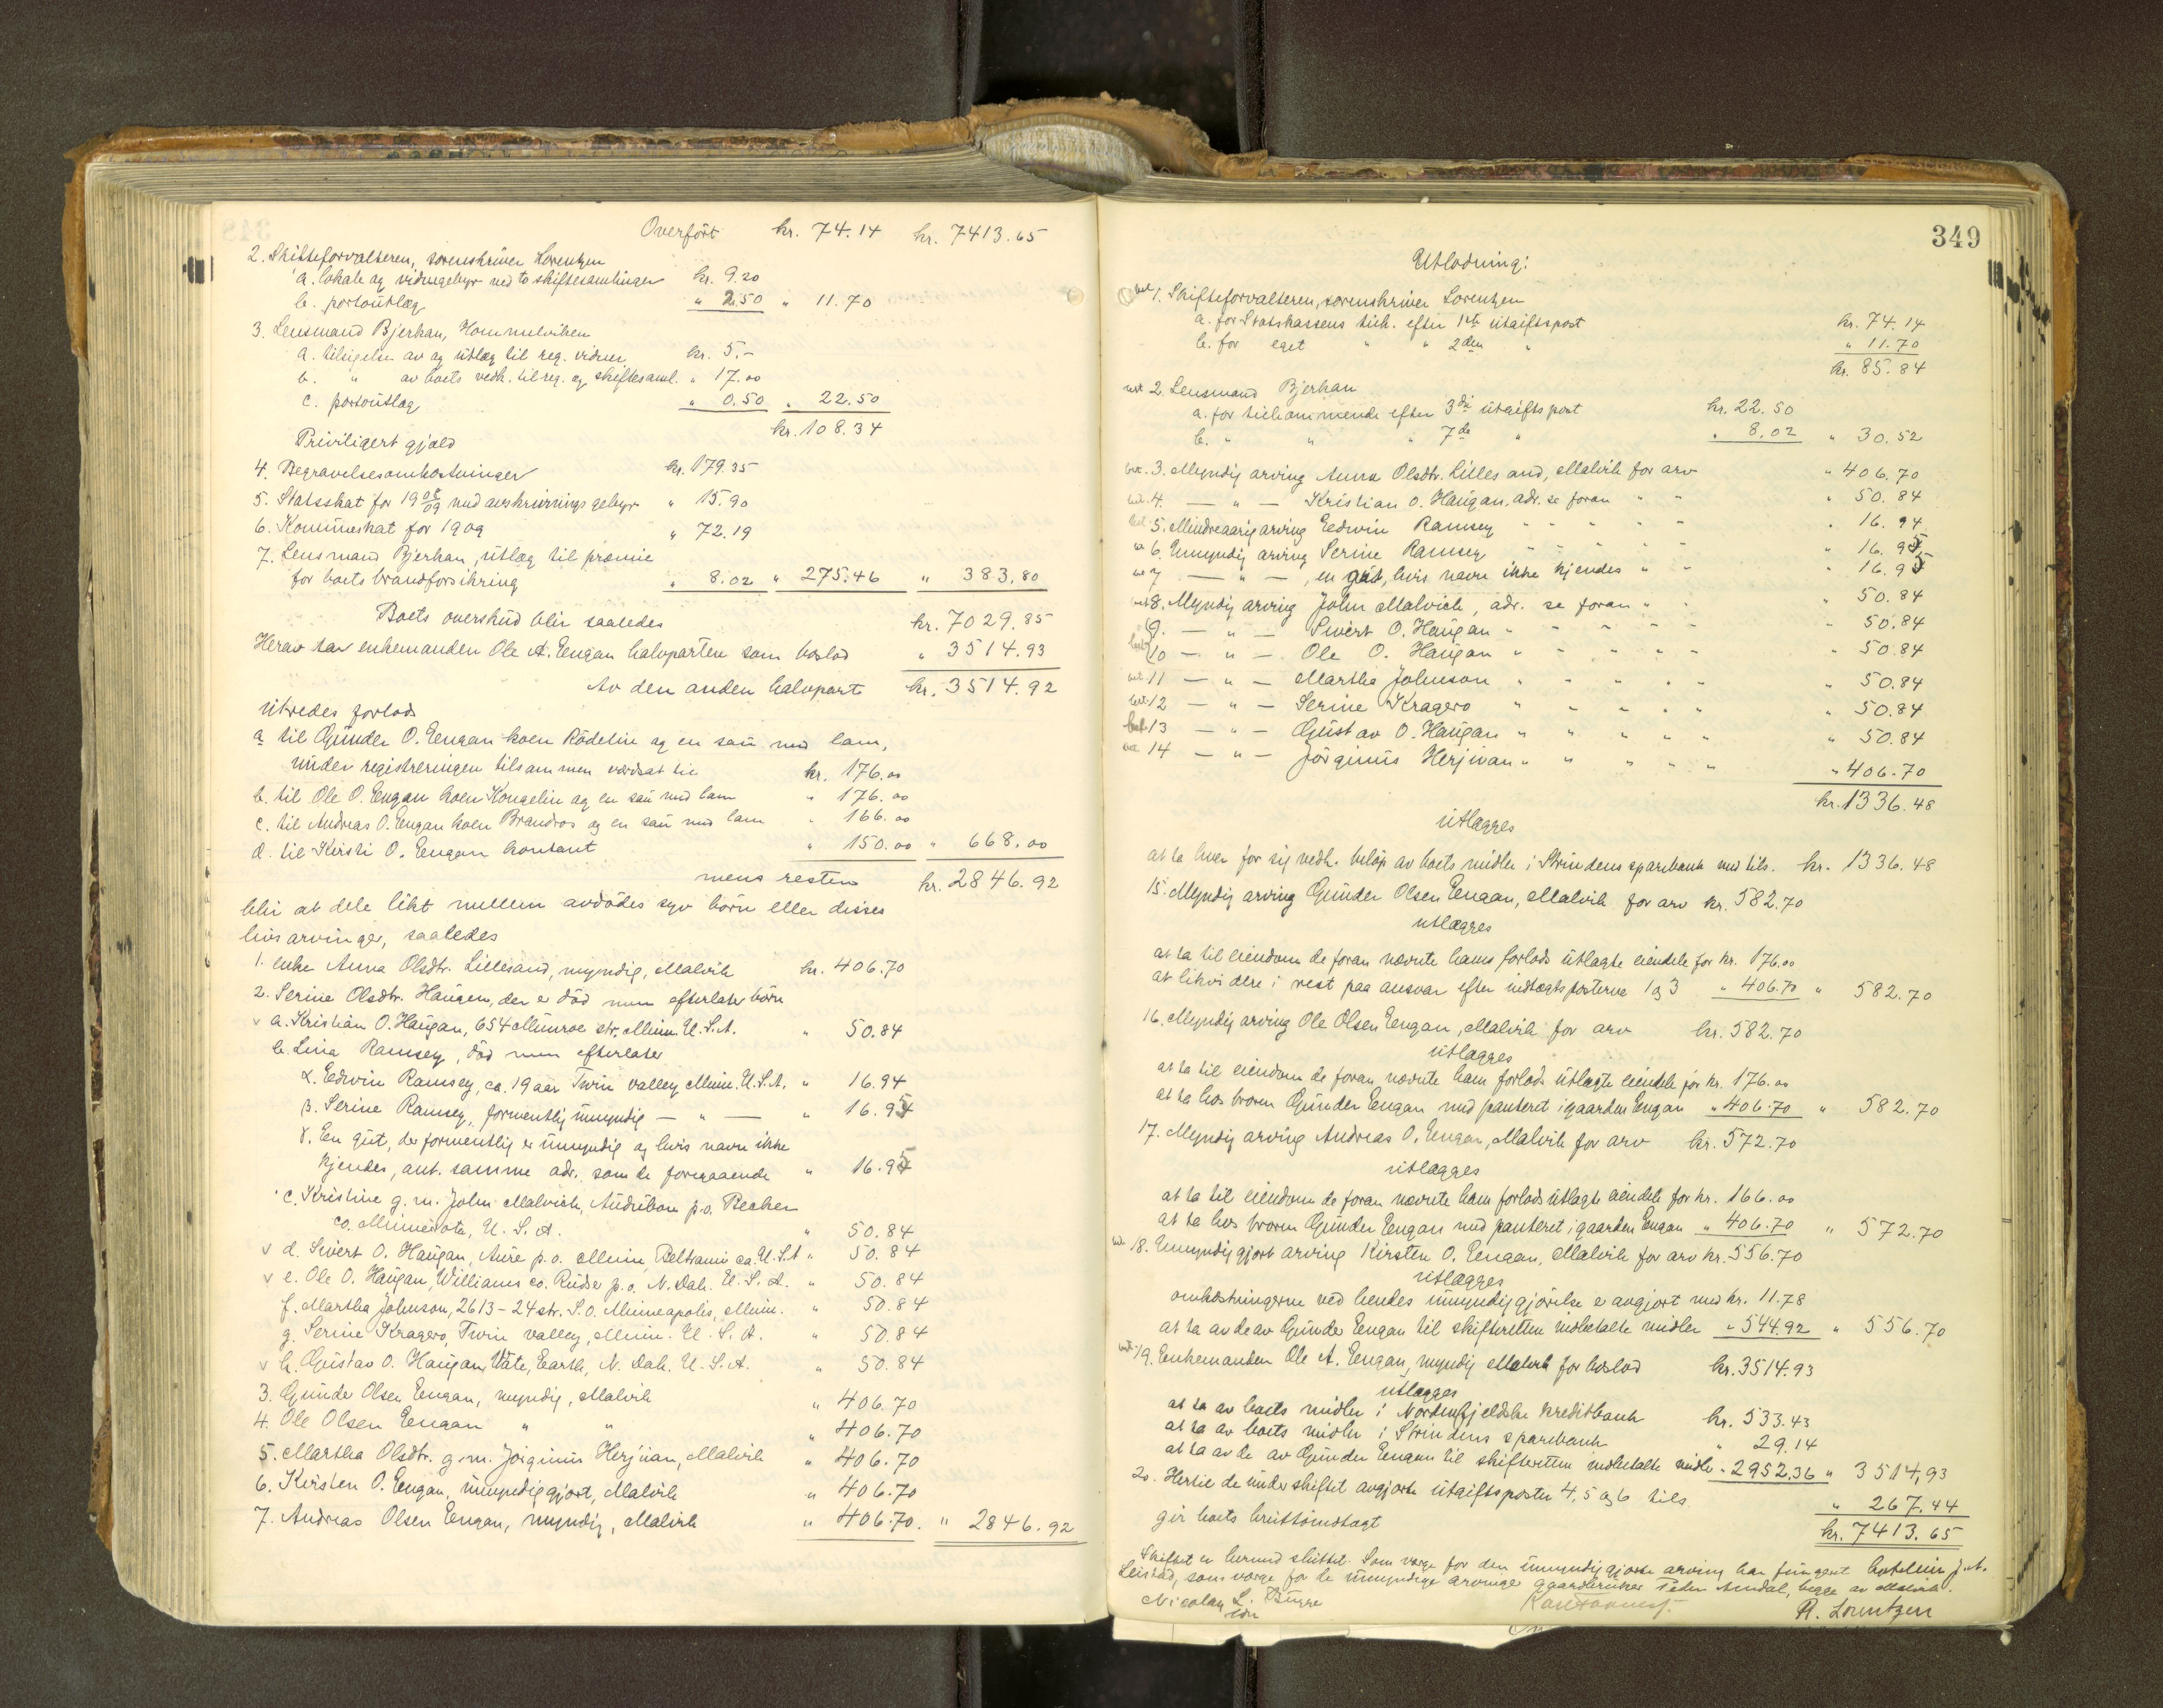 Overført kr. 74.14 kr. 7413.65
2. Skifteforvalteren, sorenskriver Lorentzen
a. lokale og vidnegebyr ved to skiftesamlinger kr. 9.20
b. portoutlæg " 2.50 " 11.70
3. Lensmand Bjerkan, Hommelviken
a. tilsigelse av og utlæg til reg. vidner kr. 5.-
b. " av boets vedk. til reg. og skiftesaml. " 17.00
c. portoutlæg " 0.50 " 22.50
kr. 108.34
Priviligert gjæld
4. Begravelsesomkostninger kr. 179.35
5. Statsskat for 1908/09 med avskrivningsgebyr " 15.90
6. Kommuneskat for 1909 " 72.19
7. Lensmand Bjerkan, utlæg til præmie
for boets brandforsikring " 8.02 " 275.46 " 383.80
Boets overskud blir saaledes kr. 7029.85
Herav tar enkemanden Ole A. Engan halvparten som boslod " 3514.93
Av den anden halvpart kr. 3514.92
utredes forlods
a til Gunder O. Engan koen Rødelin og en sau med lam,
under registreringen tilsammen værdsat til kr. 176.00
b. til Ole O. Engan koen Kongelin og en sau med lam " 176.00
c. til Andreas O. Engan koen Brandros og en sau med lam " 166.00
d. til Kirsti O. Engan kontant " 150.00 " 668.00
mens resten kr. 2846.92
blir at dele likt mellem avdødes syv børn eller disses
livsarvinger, saaledes
1. enke Anna Olsdtr. Lillesand, myndig, Malvik kr. 406.70
2. Serine Olsdtr. Haugen, der er død men efterlater børn
v a. Kristian O. Haugan, 654 Munroe str. Minn. U.S.A. " 50.84
b. Lina Ramsey, død men efterlater
α. Edwin Ramsey, ca. 19 aar Twin valley Minn. U.S.A. " 16.94
β. Serine Ramsey, formentlig umyndig — " — " 16.95
γ. En gut, der formentlig er umyndig og hvis navn ikke
kjendes, ant. samme adr. som de foregaaende " 16.95
c. Kristine g. m. John Malvich, Audubon p.o. Becker
co. Minnesota, U. S. A. " 50.84
v d. Sivert O. Haugan, Aure p.o. Minn. Beltrami co. U.S.A " 50.84
v e. Ole O. Haugan, Williams co. Ruder p.o. N. Dak. U. S. A. " 50.84
f. Martha Johnson, 2613-24 str. S.o. Minneapolis, Minn. " 50.84
g. Serine Kragero, Twin valley, Minn. U. S. A. " 50.84
v h. Gustav O. Haugan, Väte, Earth, N. Dak. U.S.A. " 50.84
3. Gunder Olsen Engan, myndig, Malvik " 406.70
4. Ole Olsen Engan " " " 406.70
5. Martha Olsdtr. g. m. Jørginus Herjuan, Malvik " 406.70
6. Kirsten O. Engan, umyndiggjort, Malvik " 406.70
7. Andreas Olsen Engan, myndig, Malvik " 406.70. " 2846.92
349
Utlodning:
1. Skifteforvalteren, sorenskriver Lorentzen
a. for Statskassens tilk. efter 1ste utgiftspost kr. 74.14
b. for eget " " 2den " " 11.70
kr. 85.84
2. Lensmand Bjerkan
a. for tilkommende efter 3die utgiftspost kr. 22.50
b. " " " 7de " " 8.02 " 30.52
3. Myndig arving Anna Olsdtr. Lillesand, Malvik for arv " 406.70
4. — " — Kristian O. Haugan, adr. se foran " " " 50.84
5. Mindreaarig arving Edwin Ramsey " " " " " " 16.94
6. Umyndig arving Serine Ramsey " " " " " " 16.95
7 — " — , en gut, hvis navn ikke kjendes " " " 16.95
8. Myndig arving John Malvich, adr. se foran " " " 50.84
9. — " — Sivert O. Haugan " " " " " " 50.84
10 — " — Ole O. Haugan " " " " " " 50.84
11 — " — Martha Johnson " " " " " " 50.84
12 — " — Serine Kragero " " " " " " 50.84
13 — " — Gustav O. Haugan " " " " " " 50.84
14 — " — Jörginus Herjuan " " " " " " 406.70
kr. 1336.48
utlægges
at ta hver for sig vedk. beløp av boets midler i Strindens sparebank med tils. kr. 1336.48
15. Myndig arving Gunder Olsen Engan, Malvik for arv kr. 582.70
utlægges
at ta til eiendom de foran nævnte hans forlods utlagte eiendele for kr. 176.00
at likvidere i rest paa ansvar efter indtægtsposterne 1 og 3 " 406.70 " 582.70
16. Myndig arving Ole Olsen Engan, Malvik for arv kr. 582.70
utlægges
at ta til eiendom de foran nævnte ham forlods utlagte eiendele for kr. 176.00
at ta hos broren Gunder Engan med panteret i gaarden Engan " 406.70 " 582.70
17. Myndig arving Andreas O. Engan, Malvik for arv kr. 572.70
utlægges
at ta til eiendom de foran nævnte ham forlods utlagte eiendele for kr. 166.00
at ta hos broren Gunder Engan med panteret i gaarden Engan " 406.70 " 572.70
18. Umyndiggjort arving Kirsten O. Engan, Malvik for arv kr. 556.70
utlægges
omkostningerne ved hendes umyndiggjørelse er avgjort med kr. 11.78
at ta av de av Gunder Engan til skifteretten indbetalte midler " 544.92 " 556.70
19. Enkemanden Ole A. Engan, myndig Malvik for boslod kr. 3514.93
utlægges
at ta av boets midler i Nordenfjeldske kreditbank kr. 533.43
at ta av boets midler i Strindens sparebank " 29.14
at ta av de av Gunder Engan til skifteretten indbetalte midler " 2952.36 " 3514,93
20. Hertil de under skiftet avgjorte utgiftsposter 4, 5 og 6 tils. " 267.44
gir boets bruttoindtægt kr. 7413.65
Skiftet er hermed sluttet. Som værge for den umyndiggjorte arving har fungert J. A.
Leistad, som værge for de umyndige arvinger gaardbruker Peder Amdal, begge av Malvik.
Nicolay L. Bugge R. Lorentzen